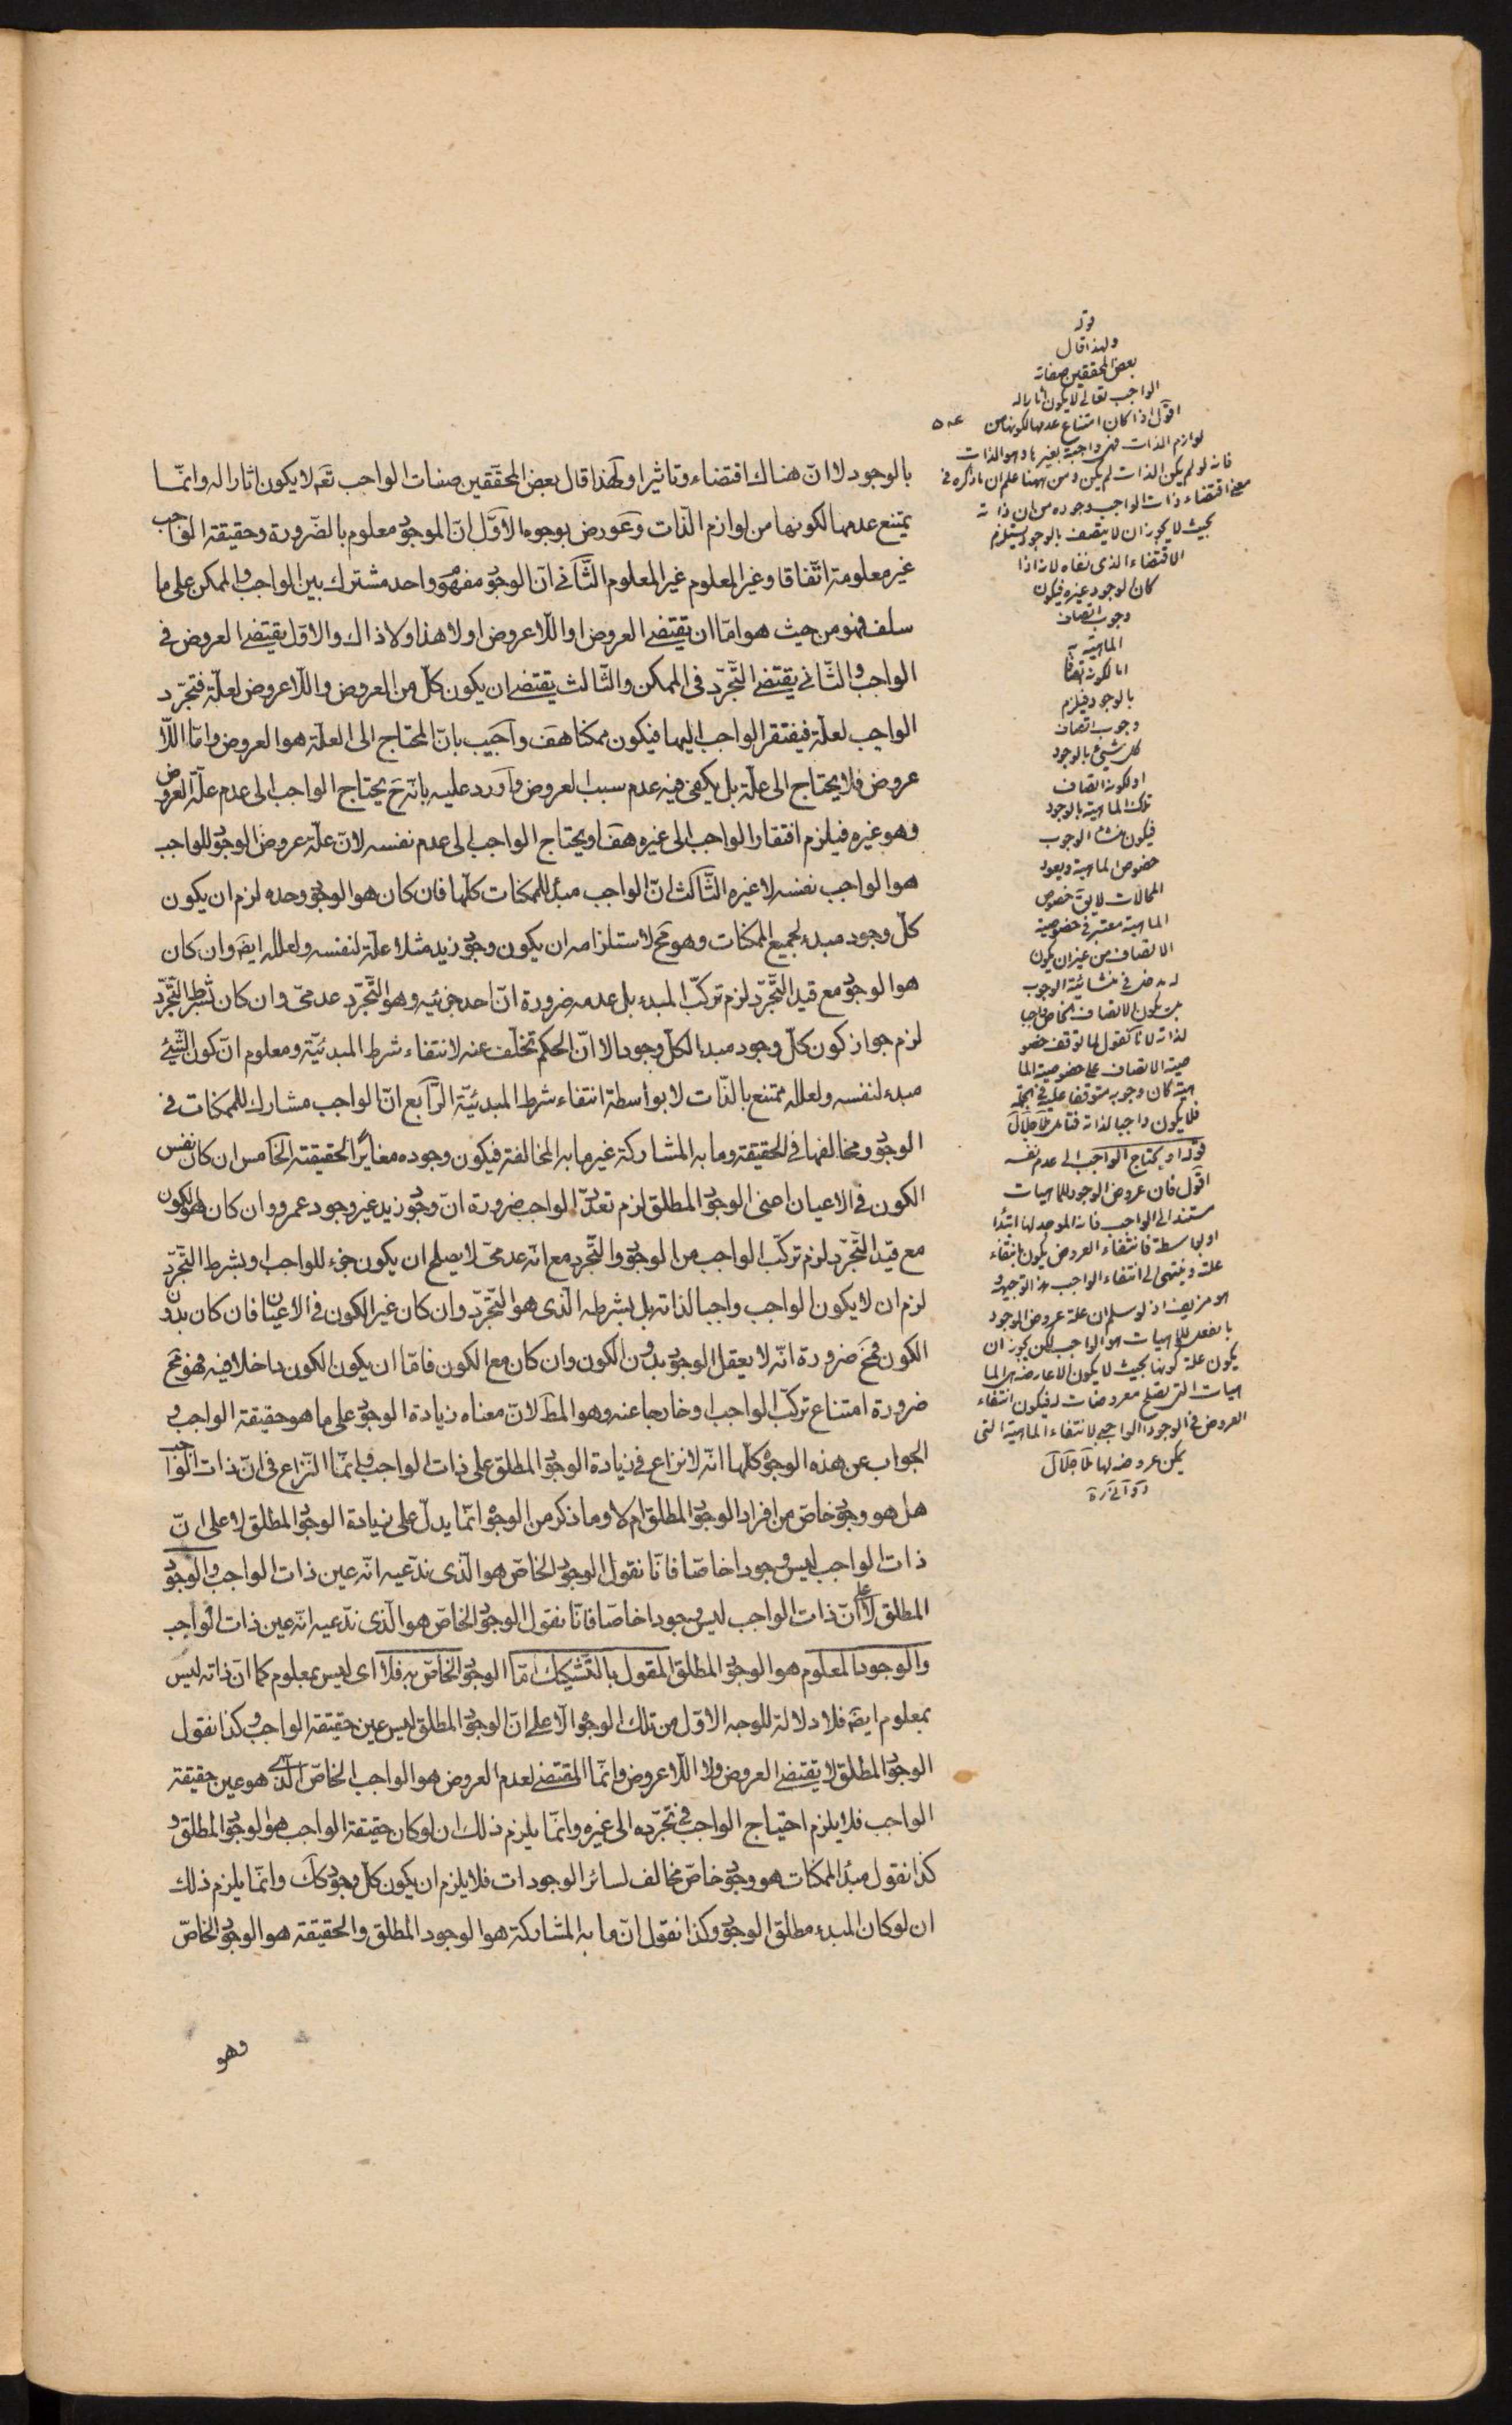 بالوجود لا انّ هناك اقتضاء وتاثيرا ولهذا قال بعض المحقّقين صفات الواجب تعه لا يكون اثارا له وانّما
يمتنع عدمها لكونها من لوازم الذّات وعورض بوجوه الاوّل انّ الموجود معلوم بالضّرورة وحقيقة الواجب
غير معلومة اتّفاقا وغير المعلوم غير المعلوم الثّاني انّ الوجود مفهوم واحد مشترك بين الواجب والممكن على ما
سلف فهو من حيث هو امّا ان يقتضي العروض او اللّاعروض او لا هذا ولا ذاك والاوّل يقتضي العروض في
الواجب والثّاني يقتضي التّجرّد في الممكن والثّالث يقتضي ان يكون كلّ من العروض واللّاعروض لعلّة فتجرّد
الواجب لعلّة فيفتقر الواجب اليها فيكون ممكنا هف واجيب بانّ المحتاج الى العلّة هو العروض وامّا اللّا
عروض فلا يحتاج الى علّة بل يكفي فيه عدم سبب العروض واورد عليه بانّه ح يحتاج الواجب الى عدم علّة العروض
وهو غيره فيلزم افتقار الواجب الى غيره هف او يحتاج الواجب الى عدم نفسه لانّ علّة عروض الوجود للواجب
هو الواجب نفسه لا غيره الثّالث انّ الواجب مبدأ للممكنات كلّها فان كان هو الوجود وحده لزم ان يكون
كلّ وجود مبدء لجميع الممكنات وهو مح لاستلزامه ان يكون وجود زيد مثلا علّة لنفسه ولعلله ايضه وان كان
هو الوجود مع قيد التّجرّد لزم تركّب المبدء بل عدمه ضرورة انّ احد جزئيه وهو التّجرّد عدمىّ وان كان بشرط التّجرّد
لزم جواز كون كلّ وجود مبدءا لكلّ وجود الا انّ الحكم تخلّف عنه لانتفاء شرط المبدئيّة ومعلوم انّ كون الشّيئ
مبدء لنفسه ولعلله ممتنع بالذّات لا بواسطة انتفاء شرط المبدئيّة الرّابع انّ الواجب مشارك للممكنات في
الوجود ومخالفها في الحقيقة وما به المشاركة غير ما به المخالفة فيكون وجوده مغايرًا لحقيقته الخامس ان كان نفس
الكون في الاعيان اعني الوجود المطلق لزم تعدّد الواجب ضرورة انّ وجود زيد غير وجود عمرو وان كان هو الكون
مع قيد التّجرّد لزم تركّب الواجب من الوجود والتّجرد مع انّه عدمىّ لا يصلح ان يكون جزء للواجب او بشرط التّجرّد
لزم ان لا يكون الواجب واجبا لذاته بل بشرطه الّذي هو التّجرّد وان كان غير الكون في الاعيان فان كان بدون
الكون فمح ضرورة انّه لا يعقل الوجود بدون الكون وان كان مع الكون فامّا ان يكون الكون داخلا فيه فهو مح
ضرورة امتناع تركّب الواجب او خارجا عنه وهو المط لانّ معناه زيادة الوجود على ما هو حقيقة الواجب و
الجواب عن هذه الوجوه كلّها انّه لا نزاع في زيادة الوجود المطلق على ذات الواجب وانّما النّزاع في انّ ذات الواجب
هل هو وجود خاصّ من افراد الوجود المطلق ام لا وما ذكر من الوجوه انّما يدلّ على زيادة الوجود المطلق لا على انّ
ذات الواجب ليس وجودا خاصّا فانّا نقول الوجود الخاصّ هو الّذى ندّعيه انّه عين ذات الواجب والوجود
المطلق لا على انّ ذات الواجب ليس وجودا خاصّا فانّا نقول الوجود الخاصّ هو الّذى ندّعيه انّه عين ذات الواجب
والوجود المعلوم هو الوجود المطلق المقول بالتّشكيك امّا الوجود الخاصّ به فلا اى ليس بمعلوم كما انّ ذاته ليس
بمعلوم ايضه فلا دلالة للوجه الاوّل من تلك الوجوه الّا على انّ الوجود المطلق ليس عين حقيقة الواجب وكذا نقول
الوجود المطلق لا يقتضي العروض ولا اللّاعروض وانّما المقتضي لعدم العروض هو الواجب الخاصّ الّذى هو عين حقيقة
الواجب فلا يلزم احتياج الواجب في تجرّده الى غيره وانّما يلزم ذلك ان لو كان حقيقة الواجب هو الوجود المطلق و
كذا نقول مبدأ الممكنات هو وجود خاصّ مخالف لسائر الوجودات فلا يلزم ان يكون كلّ وجود كك وانّما يلزم ذلك
ان لو كان المبدء مطلق الوجود وكذا نقول انّ ما به المشاركة هو الوجود المطلق والحقيقة هو الوجود الخاصّ
وهو
قوله
ولهذا قال
بعض المحققين صفات
الواجب تعالى لا يكون اثارا له
اقول اذا كان امتناع عدمها لكونها من
لوازم الذات فهى واجبة بغيرها وهو الذات
فانه لو لم يكن الذات لم يكن ومن ههنا علم ان ما ذكره في
معنى اقتضاء ذات الواجب وجوده من ان ذاته
بحيث لا يجوز ان لا يتصف بالوجود يستلزم
الاقتضاء الذى نفاه لانه اذا
كان الوجود غيره فيكون
وجوب اتصاف
الماهية به
اما لكونه اتصافا
بالوجود فيلزم
وجوب اتصاف
كل شيئ بالوجود
او لكونه اتصاف
تلك الماهية بالوجود
فيكون منشأ الوجوب
خصوص الماهية ويعود
المحالات لا يق خصوص
الماهية معتبر في خصوصية
الاتصاف من غير ان يكون
له مدخل في منشائية الوجوب
بل يكون الاتصاف الخاص واجبا
لذاته لانا نقول لما توقف خصو
صية الاتصاف على خصوصية الما
هية كان وجوبه متوقفا عليه في الجملة
فلا يكون واجبا لذاته فتامل
قوله او يحتاج الواجب الى عدم نفسه
اقول فان عروض الوجود للماهيات
مستند الى الواجب فانه الموجد لها ابتداء
او بواسطة فانتفاء العروض يكون بانتفاء
علته وينتهى الى انتفاء الواجب هذا توجيهه
هو مزيف اذ لو سلم ان علة عروض الوجود
بالفعل للماهيات هو الواجب لكن يجوز ان
يكون علة كونها بحيث لا يكون الا عارضة هى الما
هيات التى تصلح معروضات له فيكون انتفاء
العروض في الوجود الواجبى لانتفاء الماهية التى
يمكن عروضه لها